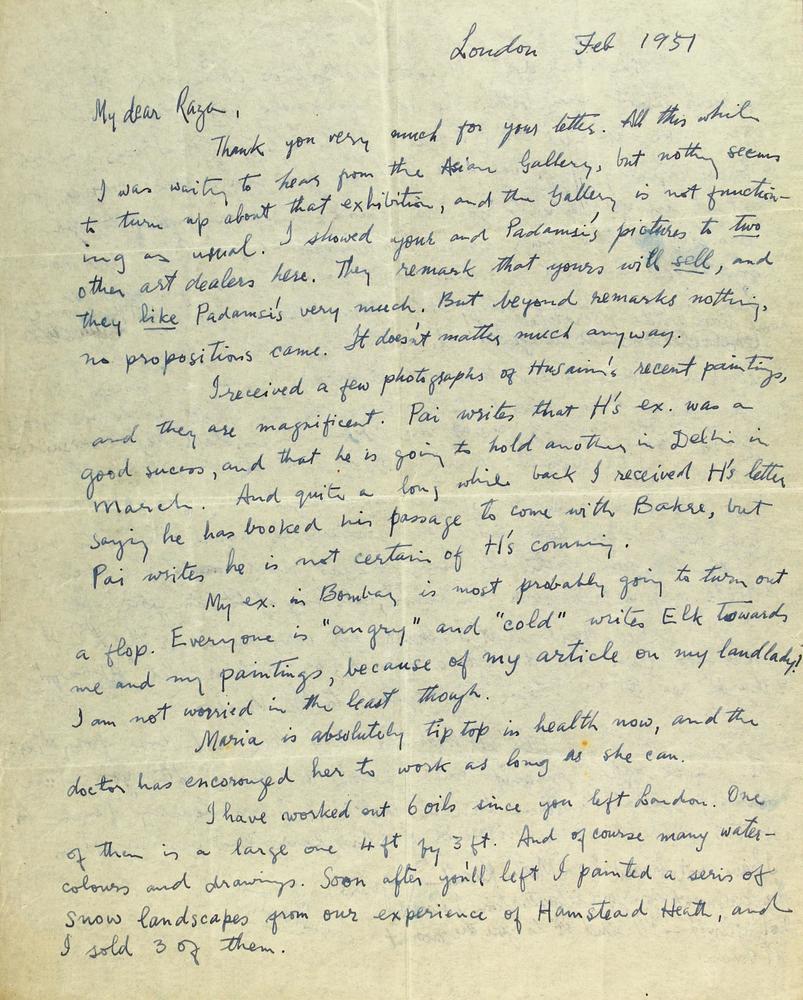 London Feb 1951
My dear Raza,
Thank you very much for your letter. All this while
I was waiting to hear from the Asian Gallery, but nothing seems
to turn up about that exhibition, and the Gallery is not function-
ing as usual. I showed your and Padamsi's pictures to two
other art dealers here. They remark that yours will sell, and
they like Padamsi's very much. But beyond remarks nothing,
no propositions came. It doesn't matter much anyway.
I received a few photographs of Husain's recent paintings,
and they are magnificent. Pai writes that H's ex. was a
good success, and that he is going to hold another in Delhi in
March. And quite a long while back I received H's letter
saying he has booked his passage to come with Bakre, but
Pai writes he is not certain of H's comming.
My ex. in Bombay is most probably going to turn out
a flop. Everyone is "angry" and "cold" writes Elk towards
me and my paintings, because of my article on my landlady!
I am not worried in the least though.
Maria is absolutely tip top in health now, and the
doctor has encorouged her to work as long as she can.
I have worked out 6 oils since you left London. One
of them is a large one 4 ft by 3 ft. And of course many water-
colours and drawings. Soon after you'll left I painted a seris of
snow landscapes from our experience of Hamstead Heath, and
I sold 3 of them.